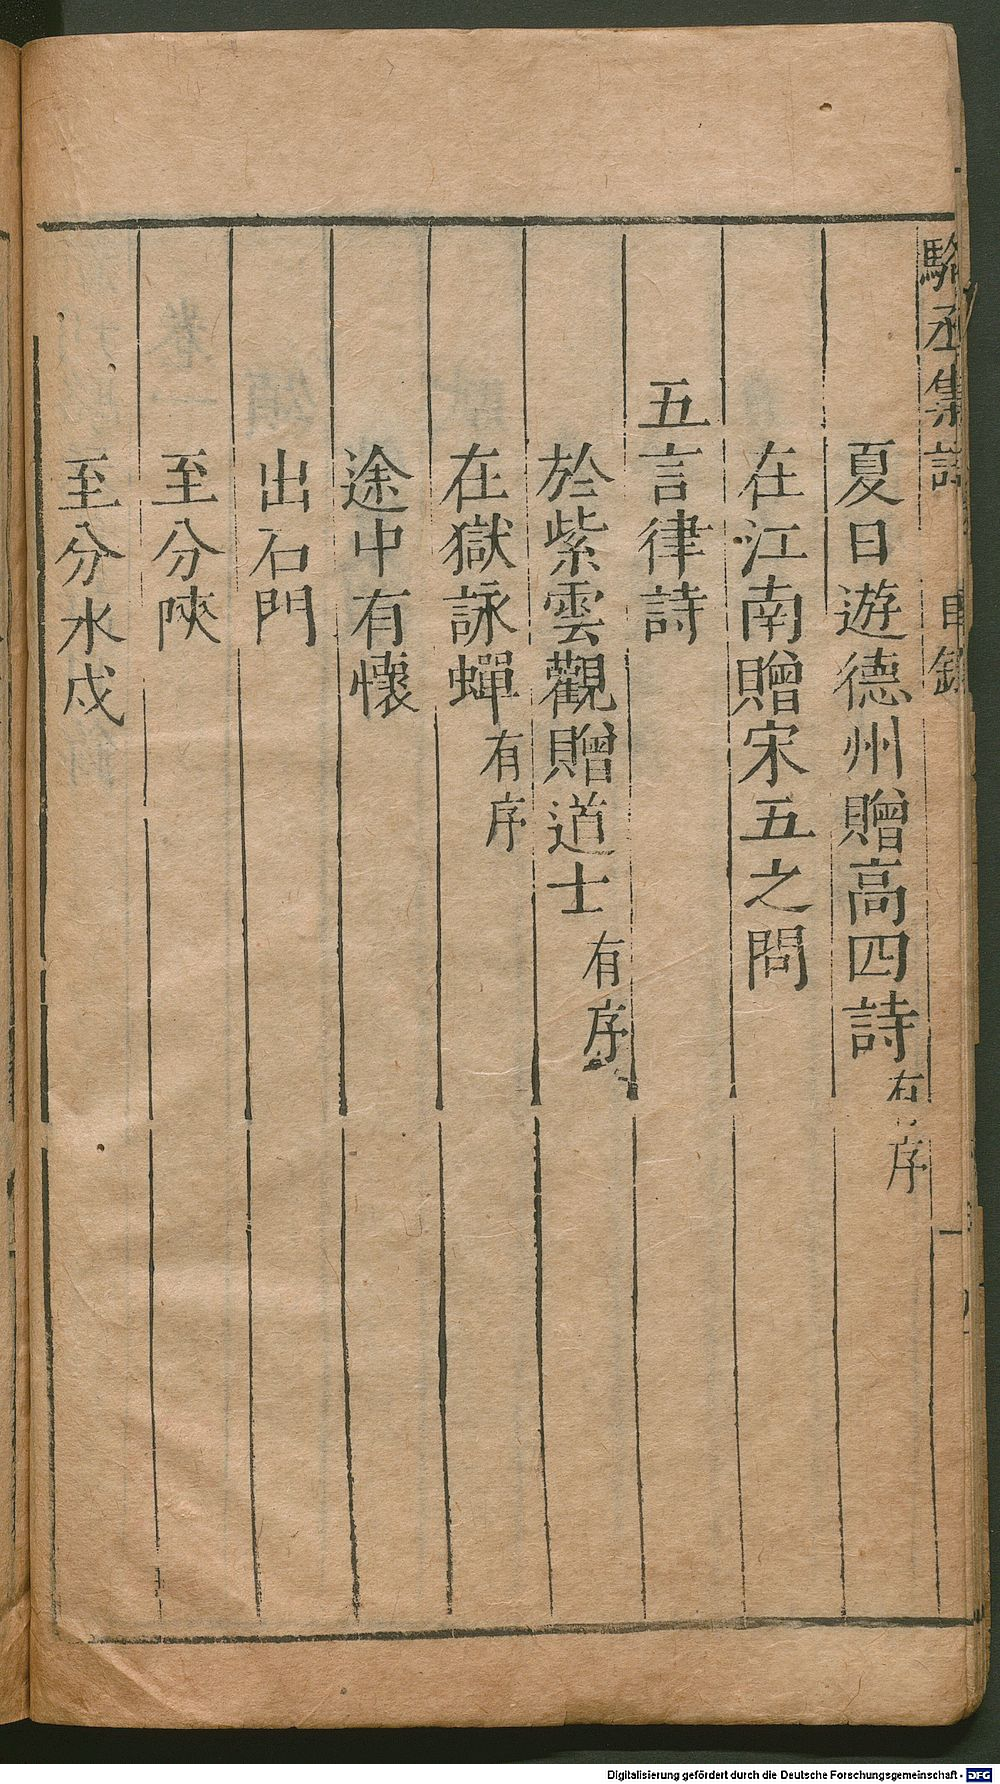 駱丞集註 目錄 一
夏日遊德州贈高四詩有序
在江南贈宋五之問
五言律詩
於紫雲觀贈道士有序
在獄詠蟬有序
途中有懷
出石門
至分陝
至分水戍
Digitalisierung gefördert durch die Deutsche Forschungsgemeinschaft - DFG